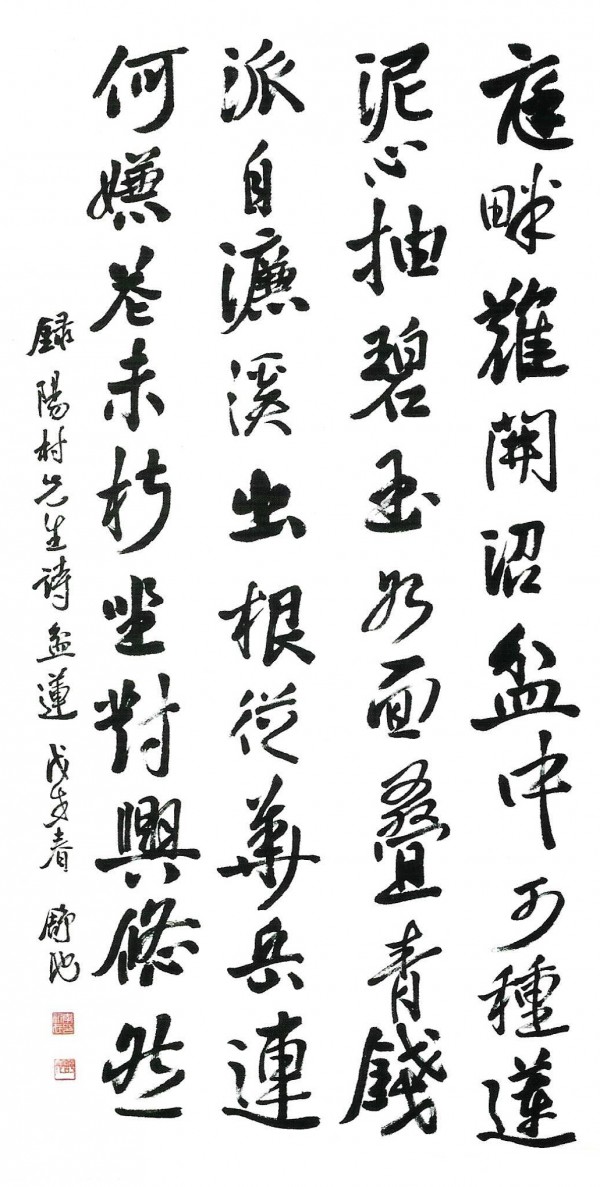 庭畔難開沼盆中可種蓮
泥心抽碧玉水面疊青錢
派自濂溪出根從華岳連
何嫌花未拆坐對興悠然
錄陽村先生詩盆蓮 戊午春